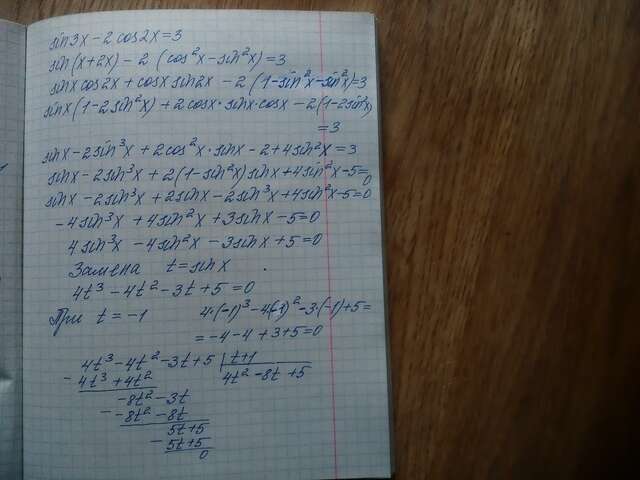 sin3x - 2cos2x = 3
sin(x+2x) - 2(cos²x - sin²x) = 3
sinx cos2x + cosx sin2x - 2(1 - sin²x - sin²x) = 3
sinx(1 - 2sin²x) + 2cosx · sinx · cosx - 2(1 - 2sin²x)
= 3
sinx - 2sin³x + 2cos²x · sinx - 2 + 4sin²x = 3
sinx - 2sin³x + 2(1 - sin²x) sinx + 4sin²x - 5 = 0
sinx - 2sin³x + 2sinx - 2sin³x + 4sin²x - 5 = 0
-4sin³x + 4sin²x + 3sinx - 5 = 0
4sin³x - 4sin²x - 3sinx + 5 = 0
Замена t = sinx.
4t³ - 4t² - 3t + 5 = 0
При t = -1 4·(-1)³ - 4(-1)² - 3·(-1) + 5 =
= -4 - 4 + 3 + 5 = 0
4t³ - 4t² - 3t + 5 | t+1
- 4t³ + 4t² 4t² - 8t + 5
-8t² - 3t
- -8t² - 8t
5t + 5
- 5t + 5
0